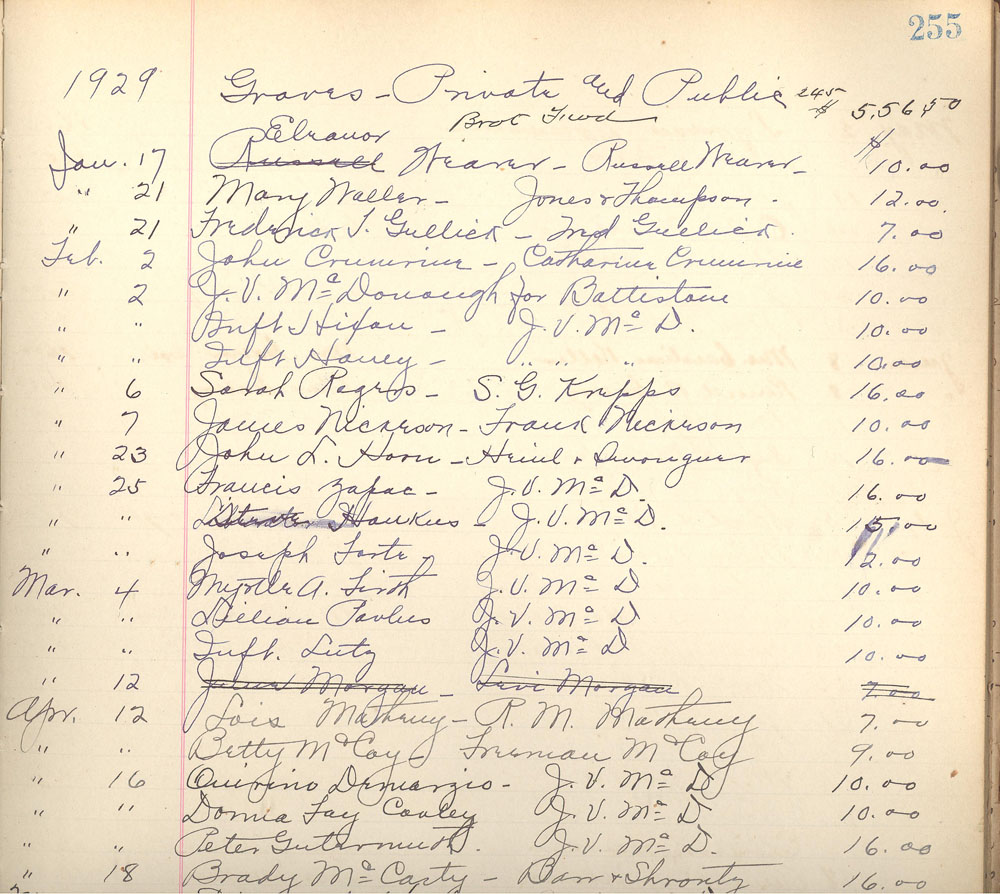 255
1929 Graves - Private and Public 245 $ 5,56 $ 50
Brot Fwd
Eleanor
Jan. 17 Russell Weaver - Russell Weaver - $ 10.00
" 21 Mary Waller - Jones & Thompson - 12.00
" 21 Frederick J. Gullick - Fred Gullick 7.00
Feb. 2 John Crumrine - Catharine Crumrine 16.00
" 2 J. V. McDonough for Battistone 10.00
" " Inft Hixon - J. V. Mc D. 10.00
" " Inft Haney - " " " 10.00
" 6 Sarah Rogers - S. G. Krepps 16.00
" 7 James Nickeson - Frank Nickeson 10.00
" 23 John L. Horn - Heinl & 16.00
" 25 Francis Zapac - J. V. Mc D. 16.00
" " Hawkus - J. V. Mc D. 15.00
" " Joseph Forte J. V. Mc D. 12.00
Mar. 4 Myrtle A. Firth J. V. Mc D 10.00
" " Lillian Paulus J. V. Mc D 10.00
" " Inft. Lutz J. V. Mc D 10.00
" 12 Morgan - Levi Morgan 7.00
Apr. 12 Lois Matheny - R. M. Matheny 7.00
" " Betty McCoy Freeman McCoy 9.00
" 16 Quirino Demarzio - J. V. Mc D 10.00
" " Donna Fay Cooley J. V. Mc D. 10.00
" " Peter Gutermuth. J. V. Mc D. 16.00
" 18 Brady McCarty - Barr & Shrontz 16.00